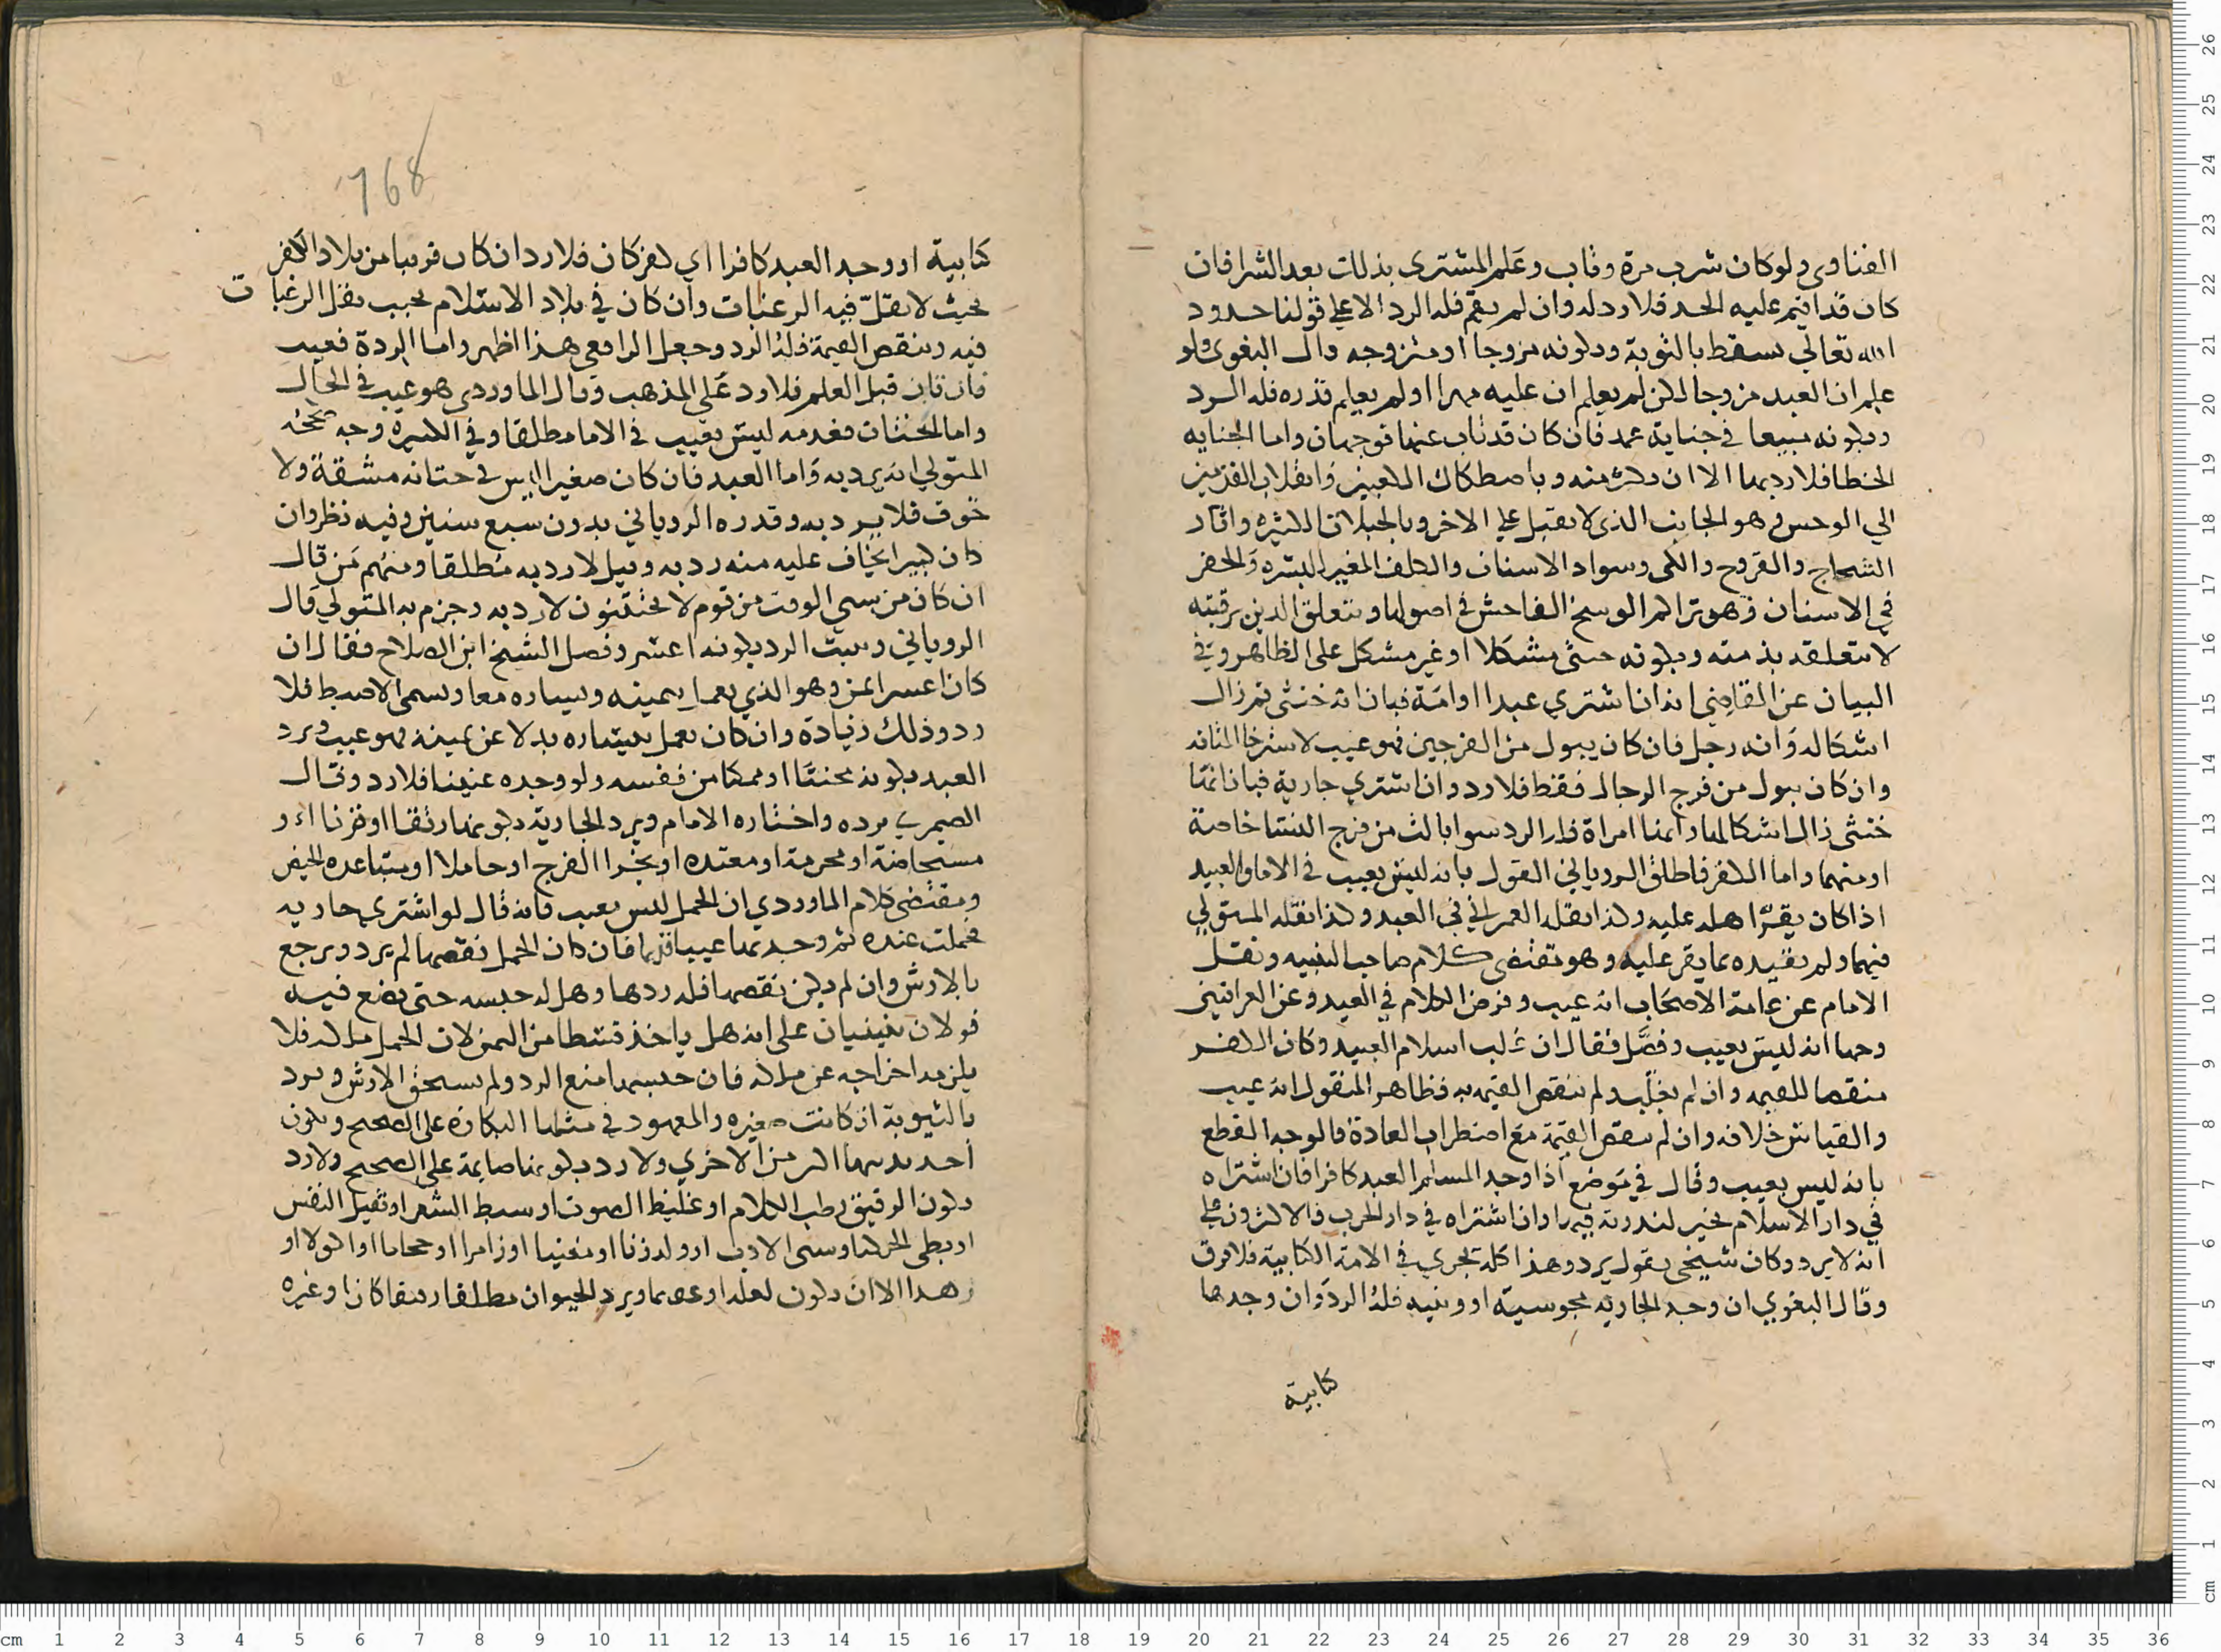 الفتاوى ولو كان شرب مرة وتاب وعلم المشترى بذلك بعد الشرا فان
كان قد اقيم عليه الحد فلا رد له وان لم يقم فله الرد الا على قولنا حدود
الله تعالى تسقط بالتوبة وبكونه مزوجا او متزوجه وقال البغوى ولو
علم ان العبد مزوجا لكن لم يعلم ان عليه مهرا او لم يعلم قدره فله الرد
وبكونه مبيعا في جناية عمد فان كان قد تاب عنها فوجهان واما الجنايه
الخطا فلا رد بها الا ان تكثر منه وباصطكاك الكعبين وانقلاب القدمين
الي الوحشى وهو الجانب الذى لا يقبل على الاخر وبالخيلان الكثيره واثار
الشجاج والقروح والكى وسواد الاسنان والكلف المغير للبشره والحفر
في الاسنان وهو تراكم الوسخ الفاحش في اصولها وبتعلق الدين برقبته
لا بتعلقه بذمته وبكونه خنثى مشكلا او غير مشكل على الظاهر وفي
البيان عن القاضي انه ان اشتري عبدا او امة فبان انه خنثى ثم زال
اشكاله وانه رجل فان كان يبول من الفرجين فهو عيب لاسترخا المثانه
وان كان يبول من فرج الرجال فقط فلا رد وان اشتري جارية فبان انها
خنثى زال اشكالها وانها امراة فلا رد سوا بالت من فرج النسا خاصة
او منهما واما الكفر فاطلق الروياني القول بانه ليس بعيب في الاما والعبيد
اذا كان يقر اهله عليه وكذا نقله العمراني في العبد وكذا نقله المتولي
فيهما ولم يقيده بما يقر عليه وهو مقتضى كلام صاحب التنبيه ونقل
الامام عن عامة الاصحاب انه عيب وفرض الكلام في العبد وعن العراقيين
وجها انه ليس بعيب وفصل فقال ان غلب اسلام العبيد وكان الكفر
منقصا للقيمه وان لم يغلب ولم تنقص القيمه به فظاهر المنقول انه عيب
والقياس خلافه وان لم تنقص القيمة مع اضطراب العادة فالوجه القطع
بانه ليس بعيب وقال في موضع اذا وجد المسلم العبد كافرا فان اشتراه
في دار الاسلام تخير لندرته فيها وان اشتراه في دار الحرب فالاكثرون على
انه لا يرد وكان شيخى يقول يرد وهذا كله يجري في الامة الكتابية فلا فرق
وقال البغوي ان وجد الجاريه مجوسية او وثنيه فله الرد وان وجدها
كتابية
768
كتابية او وجد العبد كافرا اي كفر كان فلا رد ان كان قريبا من بلاد الكفر
بحيث لا تقل فيه الرغبات وان كان في بلاد الاسلام بحيث تقل الرغبات
فيه وتنقص القيمة فله الرد وجعل الرافعي هذا اظهر واما الردة فعيب
فان تاب قبل العلم فلا رد على المذهب وقال الماوردى هو عيب في الحال
واما الختان فعدمه ليس بعيب في الاما مطلقا وفي الكبيرة وجه صححه
المتولي انه يرد به واما العبد فان كان صغيرا ليس في ختانه مشقة ولا
خوف فلا يرد به وقدره الروياني بدون سبع سنين وفيه نظر وان
كان كبيرا يخاف عليه منه رد به وقيل لا رد به مطلقا ومنهم من قال
ان كان من سبي الوقت من قوم لا يختتنون لا رد به وجزم به المتولي قال
الروياني ويثبت الرد بكونه اعسر وفصل الشيخ ابن الصلاح فقال ان
كان اعسر ايمن وهو الذي يعمل بيمينه ويساره معا ويسمى الاضبط فلا
رد وذلك زيادة وان كان يعمل بيساره بدلا عن يمينه فهو عيب ويرد
العبد بكونه مخنثا او ممكنا من نفسه ولو وجده عنينا فلا رد وقال
الصيمري يرده واختاره الامام ويرد الجارية بكونها رتقا او قرنا او
مستحاضة او محرمة او معتده او بخرا الفرج او حاملا او متباعده الحيض
ومقتضى كلام الماوردي ان الحمل ليس بعيب فانه قال لو اشترى جاريه
فحملت عنده ثم وجد بها عيبا قديما فان كان الحمل نقصها لم يرد ويرجع
بالارش وان لم يكن نقصها فله ردها وهل له حبسه حتى تضع فيه
قولان مبنيان على انه هل ياخذ قسطا من الثمن لان الحمل ملكه فلا
يلزمه اخراجه عن ملكه فان حبسها منع الرد ولم يستحق الارش ويرد
بالثيوبة ان كانت صغيره والمعهود في مثلها البكارة على الصحيح وبكون
احد ثدييها اكبر من الاخري ولا رد بكونها صايمة على الصحيح ولا رد
بكون الرقيق رطب الكلام او غليظ الصوت او سبط الشعر او ثقيل النفس
او بطى الحركه او سى الادب او ولد زنا او مغنيا او زامرا او حجاما او اكولا او
زهيدا الا ان يكون لعله او عصما ويرد الحيوان مطلقا رقيقا كان او غيره